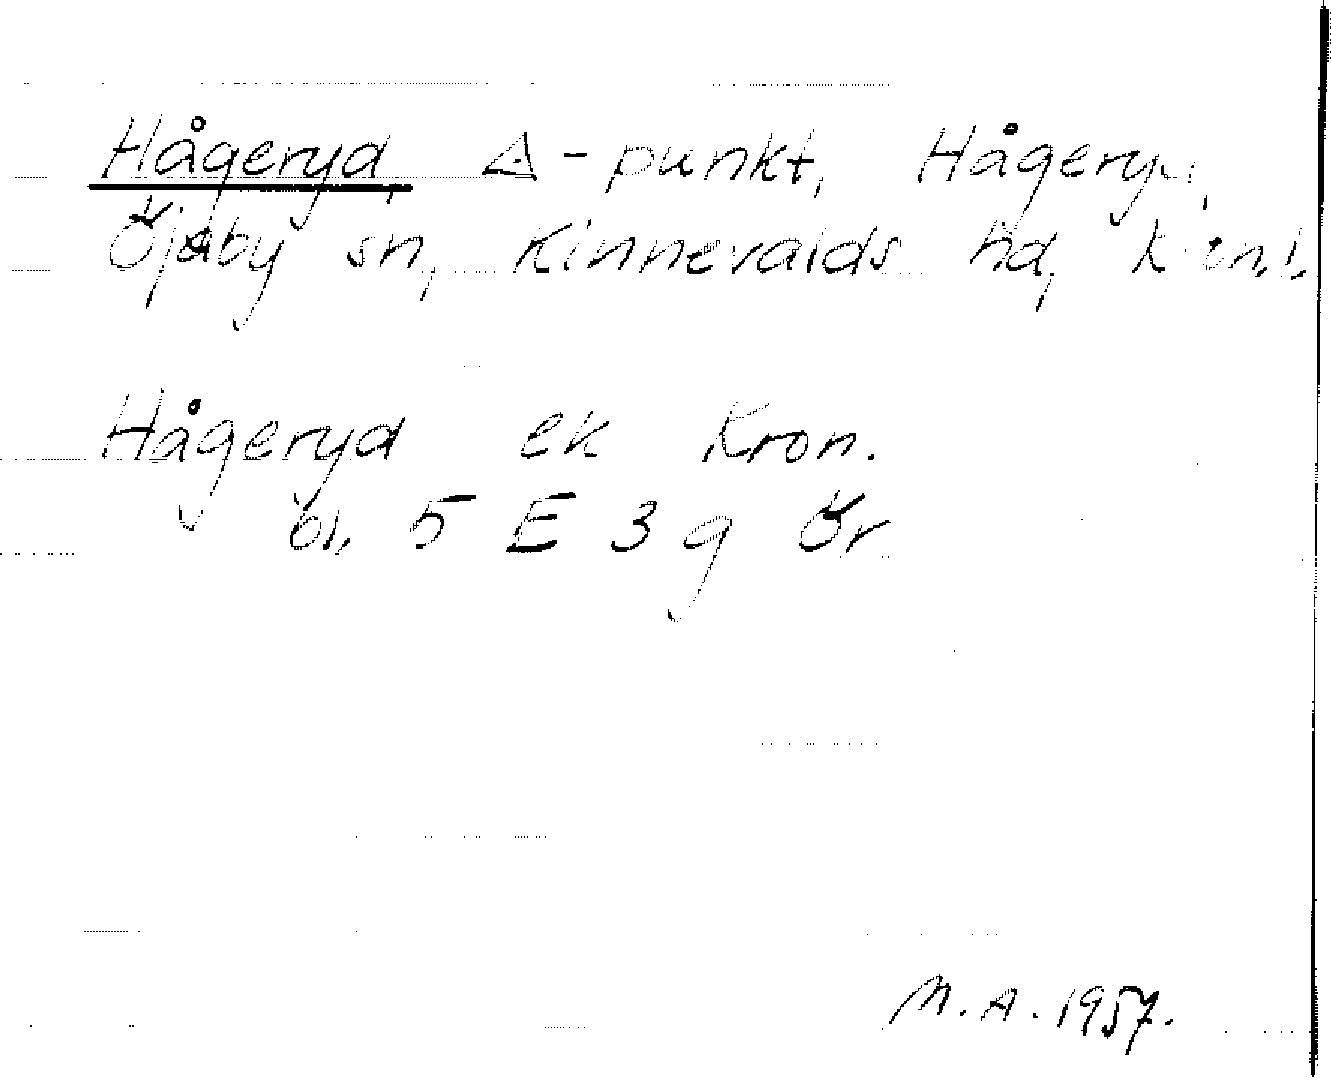 Hågeryd, △-punkt, Hågeryd,
Öjaby sn, Kinnevalds hd, Kron.l.
Hågeryd ek Kron.
bl. 5 E 3 g Ör
M.A. 1957.